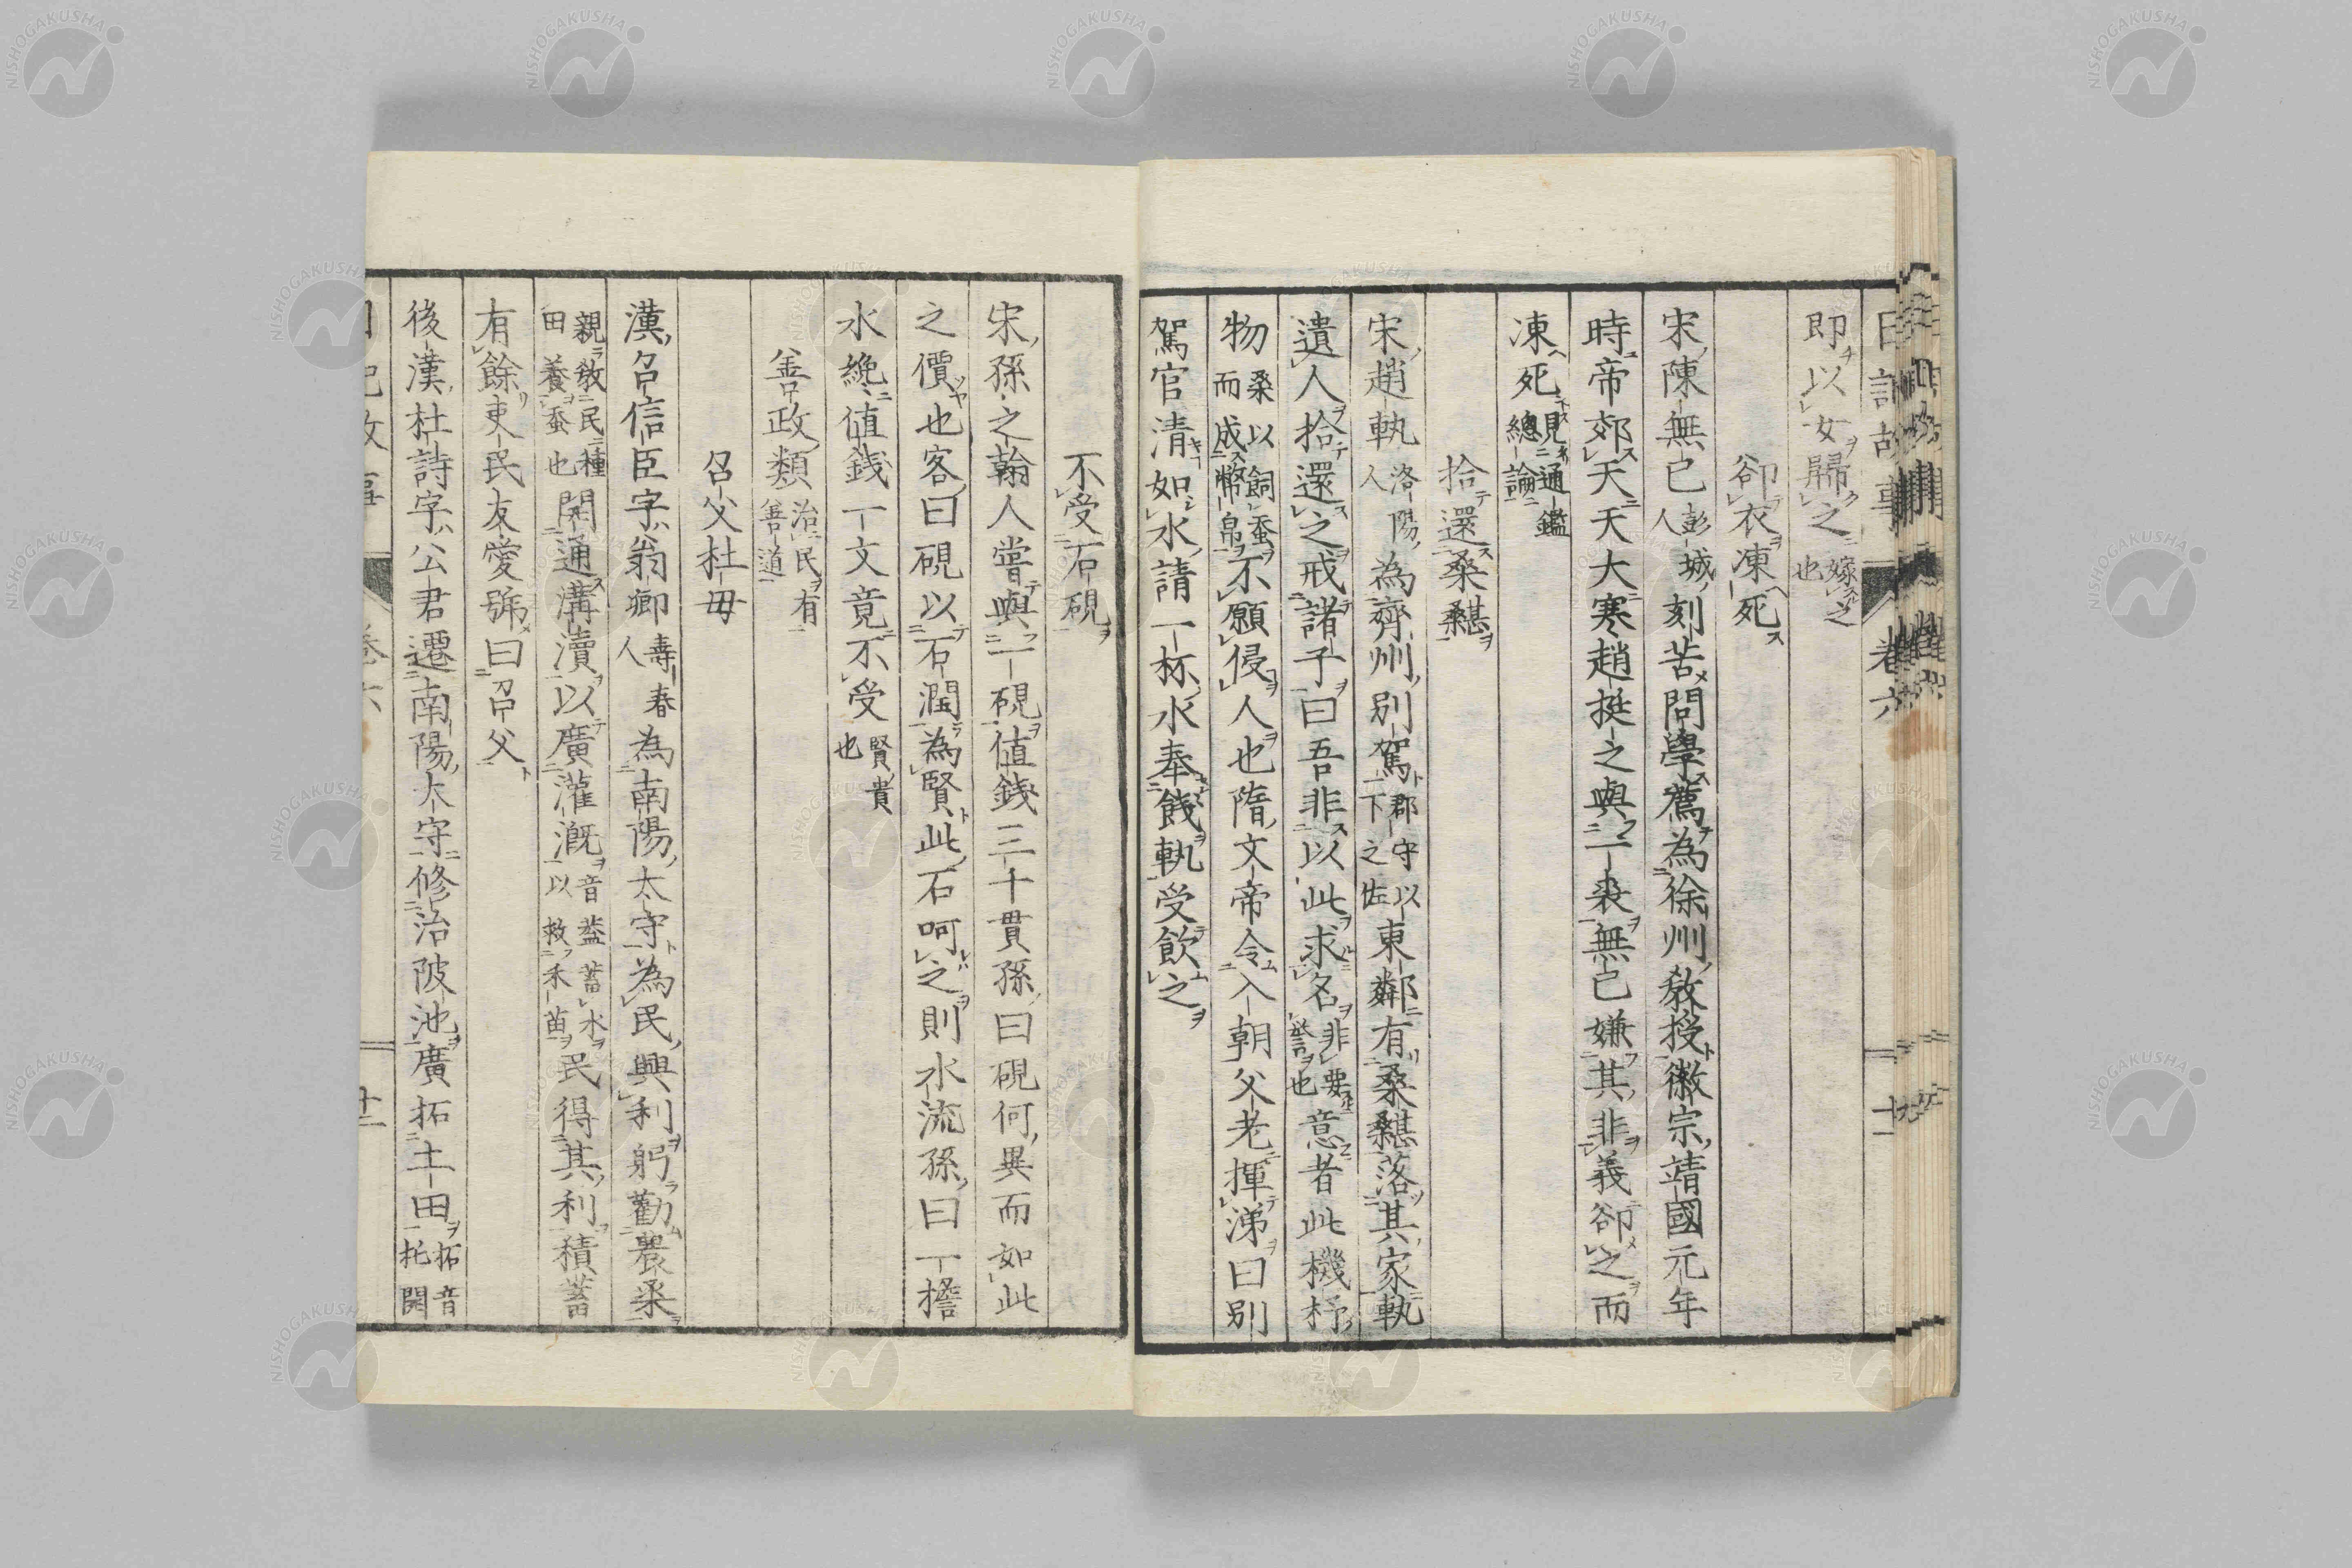 日記故事 卷六 十一
即以女歸之嫁之也
卻衣凍死
宋陳無已彭城人刻苦問學薦為徐州教授徽宗靖國元年
時帝郊天天大寒趙挺之與一裘無已嫌其非義卻之而
凍死見通鑑總論
拾還桑椹
宋趙軌洛陽人為齊州別駕郡守以下之佐東鄰有桑椹落其家軌
遺人拾還之戒諸子曰吾非以此求名非要譽也意者此機杼
物桑以飼蚕而成幣帛不願侵人也隋文帝令入朝父老揮涕曰別
駕官清如水請一杯水奉餞軌受飲之
不受石硯
宋孫之翰人嘗與一硯值錢三十貫孫曰硯何異而如此
之價也客曰硯以石潤為賢此石呵之則水流孫曰一擔
水纔值錢一文竟不受賢貴也
善政類治民有善道
召父杜母
漢召信臣字翁卿壽春人為南陽太守為民興利躬勸農桒
親教民種田養蚕也開通溝瀆以廣灌漑音葢蓄水以救禾苗民得其利積蓄
有餘吏民友愛號曰召父
後漢杜詩字公君遷南陽太守修治陂池廣拓土田拓音托開